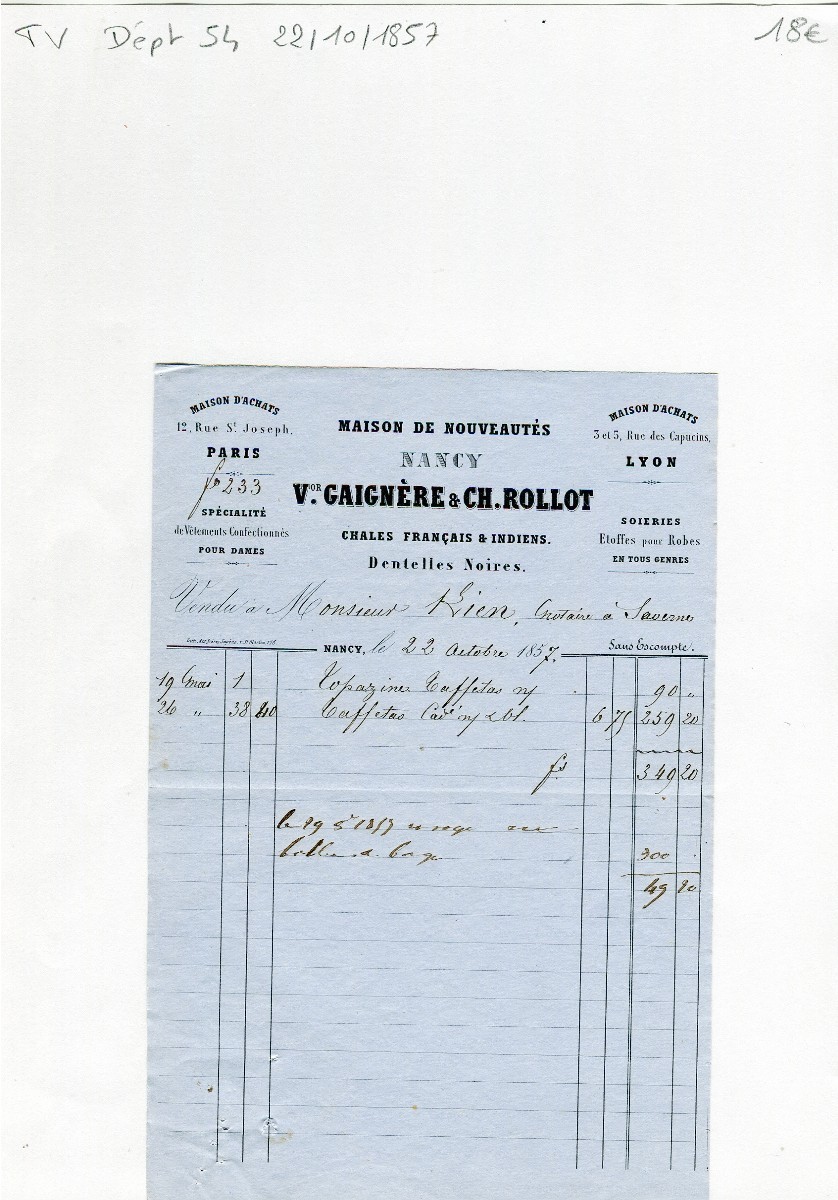 TV Dépt 54 22/10/1857 18€
MAISON D'ACHATS
12, Rue St. Joseph,
PARIS
fo 233
SPÉCIALITÉ
de Vêtements Confectionnés
POUR DAMES
MAISON DE NOUVEAUTÉS
NANCY
VOR. GAIGNÈRE & CH. ROLLOT
CHALES FRANÇAIS & INDIENS.
Dentelles Noires.
MAISON D'ACHATS
3 et 5, Rue des Capucins,
LYON
SOIERIES
Etoffes pour Robes
EN TOUS GENRES
Vendu à Monsieur Kien, Notaire à Saverne
NANCY, le 22 Octobre 1857. Sans Escompte.
19 Mai 1 Topazine Taffetas 90 "
26 " 38 40 Taffetas 6 75 259 20
fs 349 20
le 29 1857
300
49 20